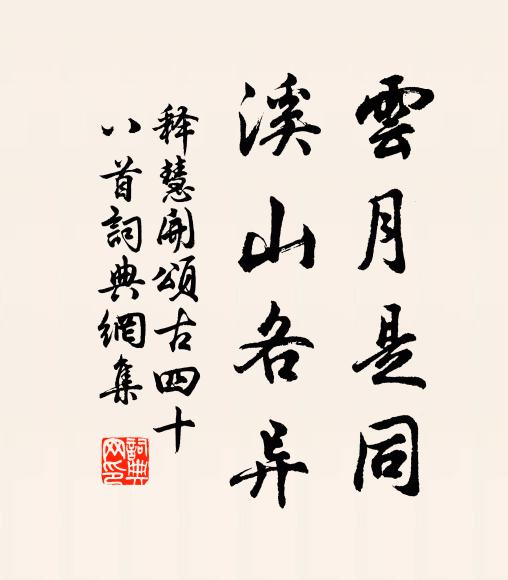 雲月是同
溪山各异
释慧開頌古四十
八首詞典網集
詞典
网印